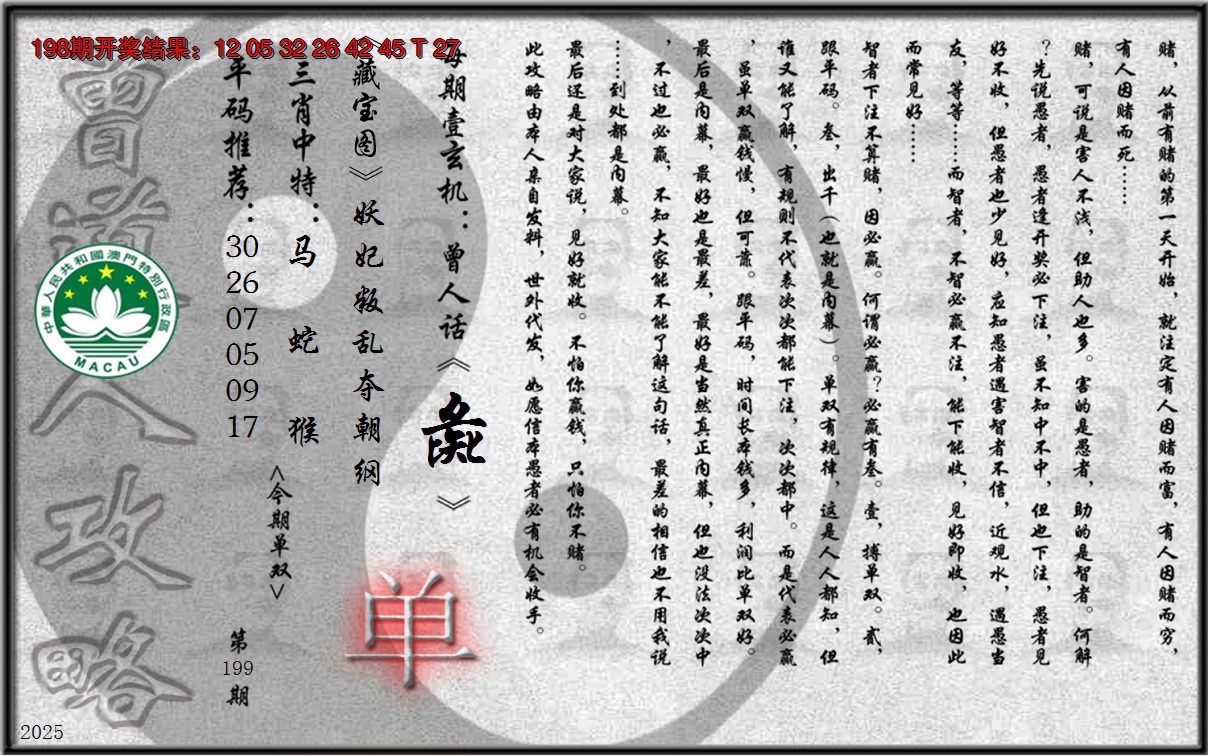 198期开奖结果：12 05 32 26 42 45 T 27
赌，从前有赌的第一天开始，就注定有人因赌而富，有人因赌而穷，
有人因赌而死……
赌，可说是害人不浅，但助人也多。害的是愚者，助的是智者。何解
？先说愚者，愚者逢开奖必下注，虽不知中不中，但也下注，愚者见
好不收，但愚者也少见好，应知愚者遇害智者不信，近观水，遇愚当
友，等等……而智者，不智必赢不注，能下能收，见好即收，也因此
而常见好……
智者下注不算赌，因必赢。何谓必赢？必赢有叁。壹，搏单双。贰，
跟平码。叁，出千（也就是内幕）。单双有规律，这是人人都知，但
谁又能了解，有规则不代表次次都能下注，次次都中。而是代表必赢
，虽单双赢钱慢，但可靠。跟平码，时间长本钱多，利润比单双好。
最后是内幕，最好也是最差，最好是当然真正内幕，但也没法次次中
，不过也必赢，不知大家能不能了解这句话，最差的相信也不用我说
……到处都是内幕。
最后还是对大家说，见好就收。不怕你赢钱，只怕你不赌。
此攻略由本人亲自发料，世外代发，如愿信本愚者必有机会收手。
每期壹玄机：曾人话《彘》
《藏宝图》妖妃叛乱夺朝纲
单
三肖中特：马 蛇 猴
<今期单双>
平码推荐：30 26 07 05 09 17
第
199
期
曾道人攻略
中華人民共和國澳門特別行政區
MACAU
2025